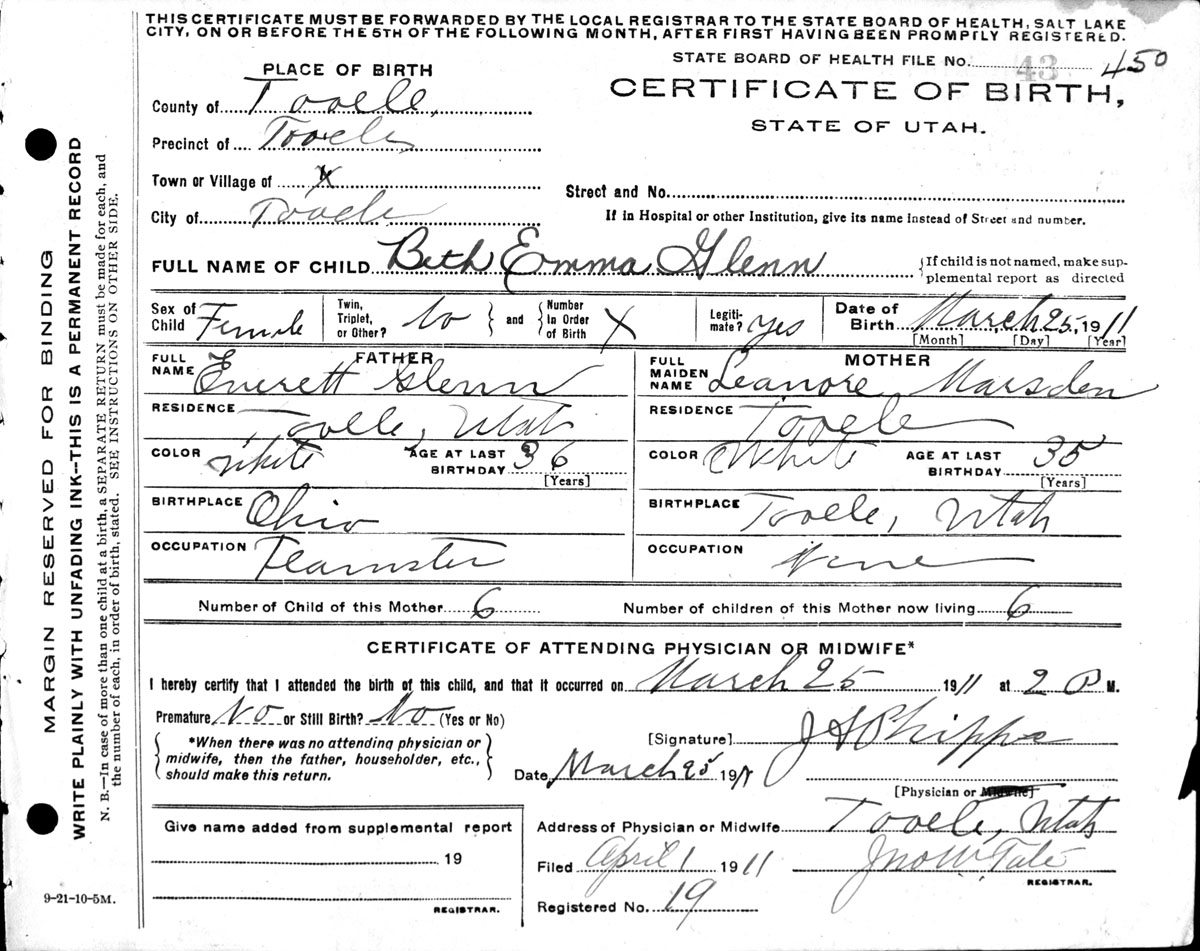 THIS CERTIFICATE MUST BE FORWARDED BY THE LOCAL REGISTRAR TO THE STATE BOARD OF HEALTH, SALT LAKE
CITY, ON OR BEFORE THE 5TH OF THE FOLLOWING MONTH, AFTER FIRST HAVING BEEN PROMPTLY REGISTERED.
STATE BOARD OF HEALTH FILE No. 43 450
PLACE OF BIRTH
CERTIFICATE OF BIRTH,
STATE OF UTAH.
County of Tooele,
Precinct of Tooele
Town or Village of X
Street and No.
City of Tooele
If in Hospital or other Institution, give its name instead of Street and number.
FULL NAME OF CHILD Beth Emma Glenn
{If child is not named, make sup-
plemental report as directed
Sex of Child Female
Twin, Triplet, or Other? No } and { Number In Order of Birth X
Legiti-mate? yes
Date of Birth March 25, 1911
[Month] [Day] [Year]
FATHER
FULL NAME Everett Glenn
RESIDENCE Tooele, Utah
COLOR White AGE AT LAST BIRTHDAY 36
[Years]
BIRTHPLACE Ohio
OCCUPATION Teamster
MOTHER
FULL MAIDEN NAME Leanore Marsden
RESIDENCE Tooele
COLOR White AGE AT LAST BIRTHDAY 35
[Years]
BIRTHPLACE Tooele, Utah
OCCUPATION
Number of Child of this Mother 6 Number of children of this Mother now living 6
CERTIFICATE OF ATTENDING PHYSICIAN OR MIDWIFE*
I hereby certify that I attended the birth of this child, and that it occurred on March 25 1911 at 2 P M.
Premature No or Still Birth? No (Yes or No)
{ *When there was no attending physician or
midwife, then the father, householder, etc.,
should make this return. }
[Signature] J A Phipps
Date March 25 1911
[Physician or Midwife]
Give name added from supplemental report
19
REGISTRAR.
Address of Physician or Midwife Tooele, Utah
Filed April 1 1911 Jno W Tate
REGISTRAR.
Registered No. 19
9-21-10-5M.
MARGIN RESERVED FOR BINDING
WRITE PLAINLY WITH UNFADING INK--THIS IS A PERMANENT RECORD
N. B.—In case of more than one child at a birth, a SEPARATE RETURN must be made for each, and
the number of each, in order of birth, stated. SEE INSTRUCTIONS ON OTHER SIDE.